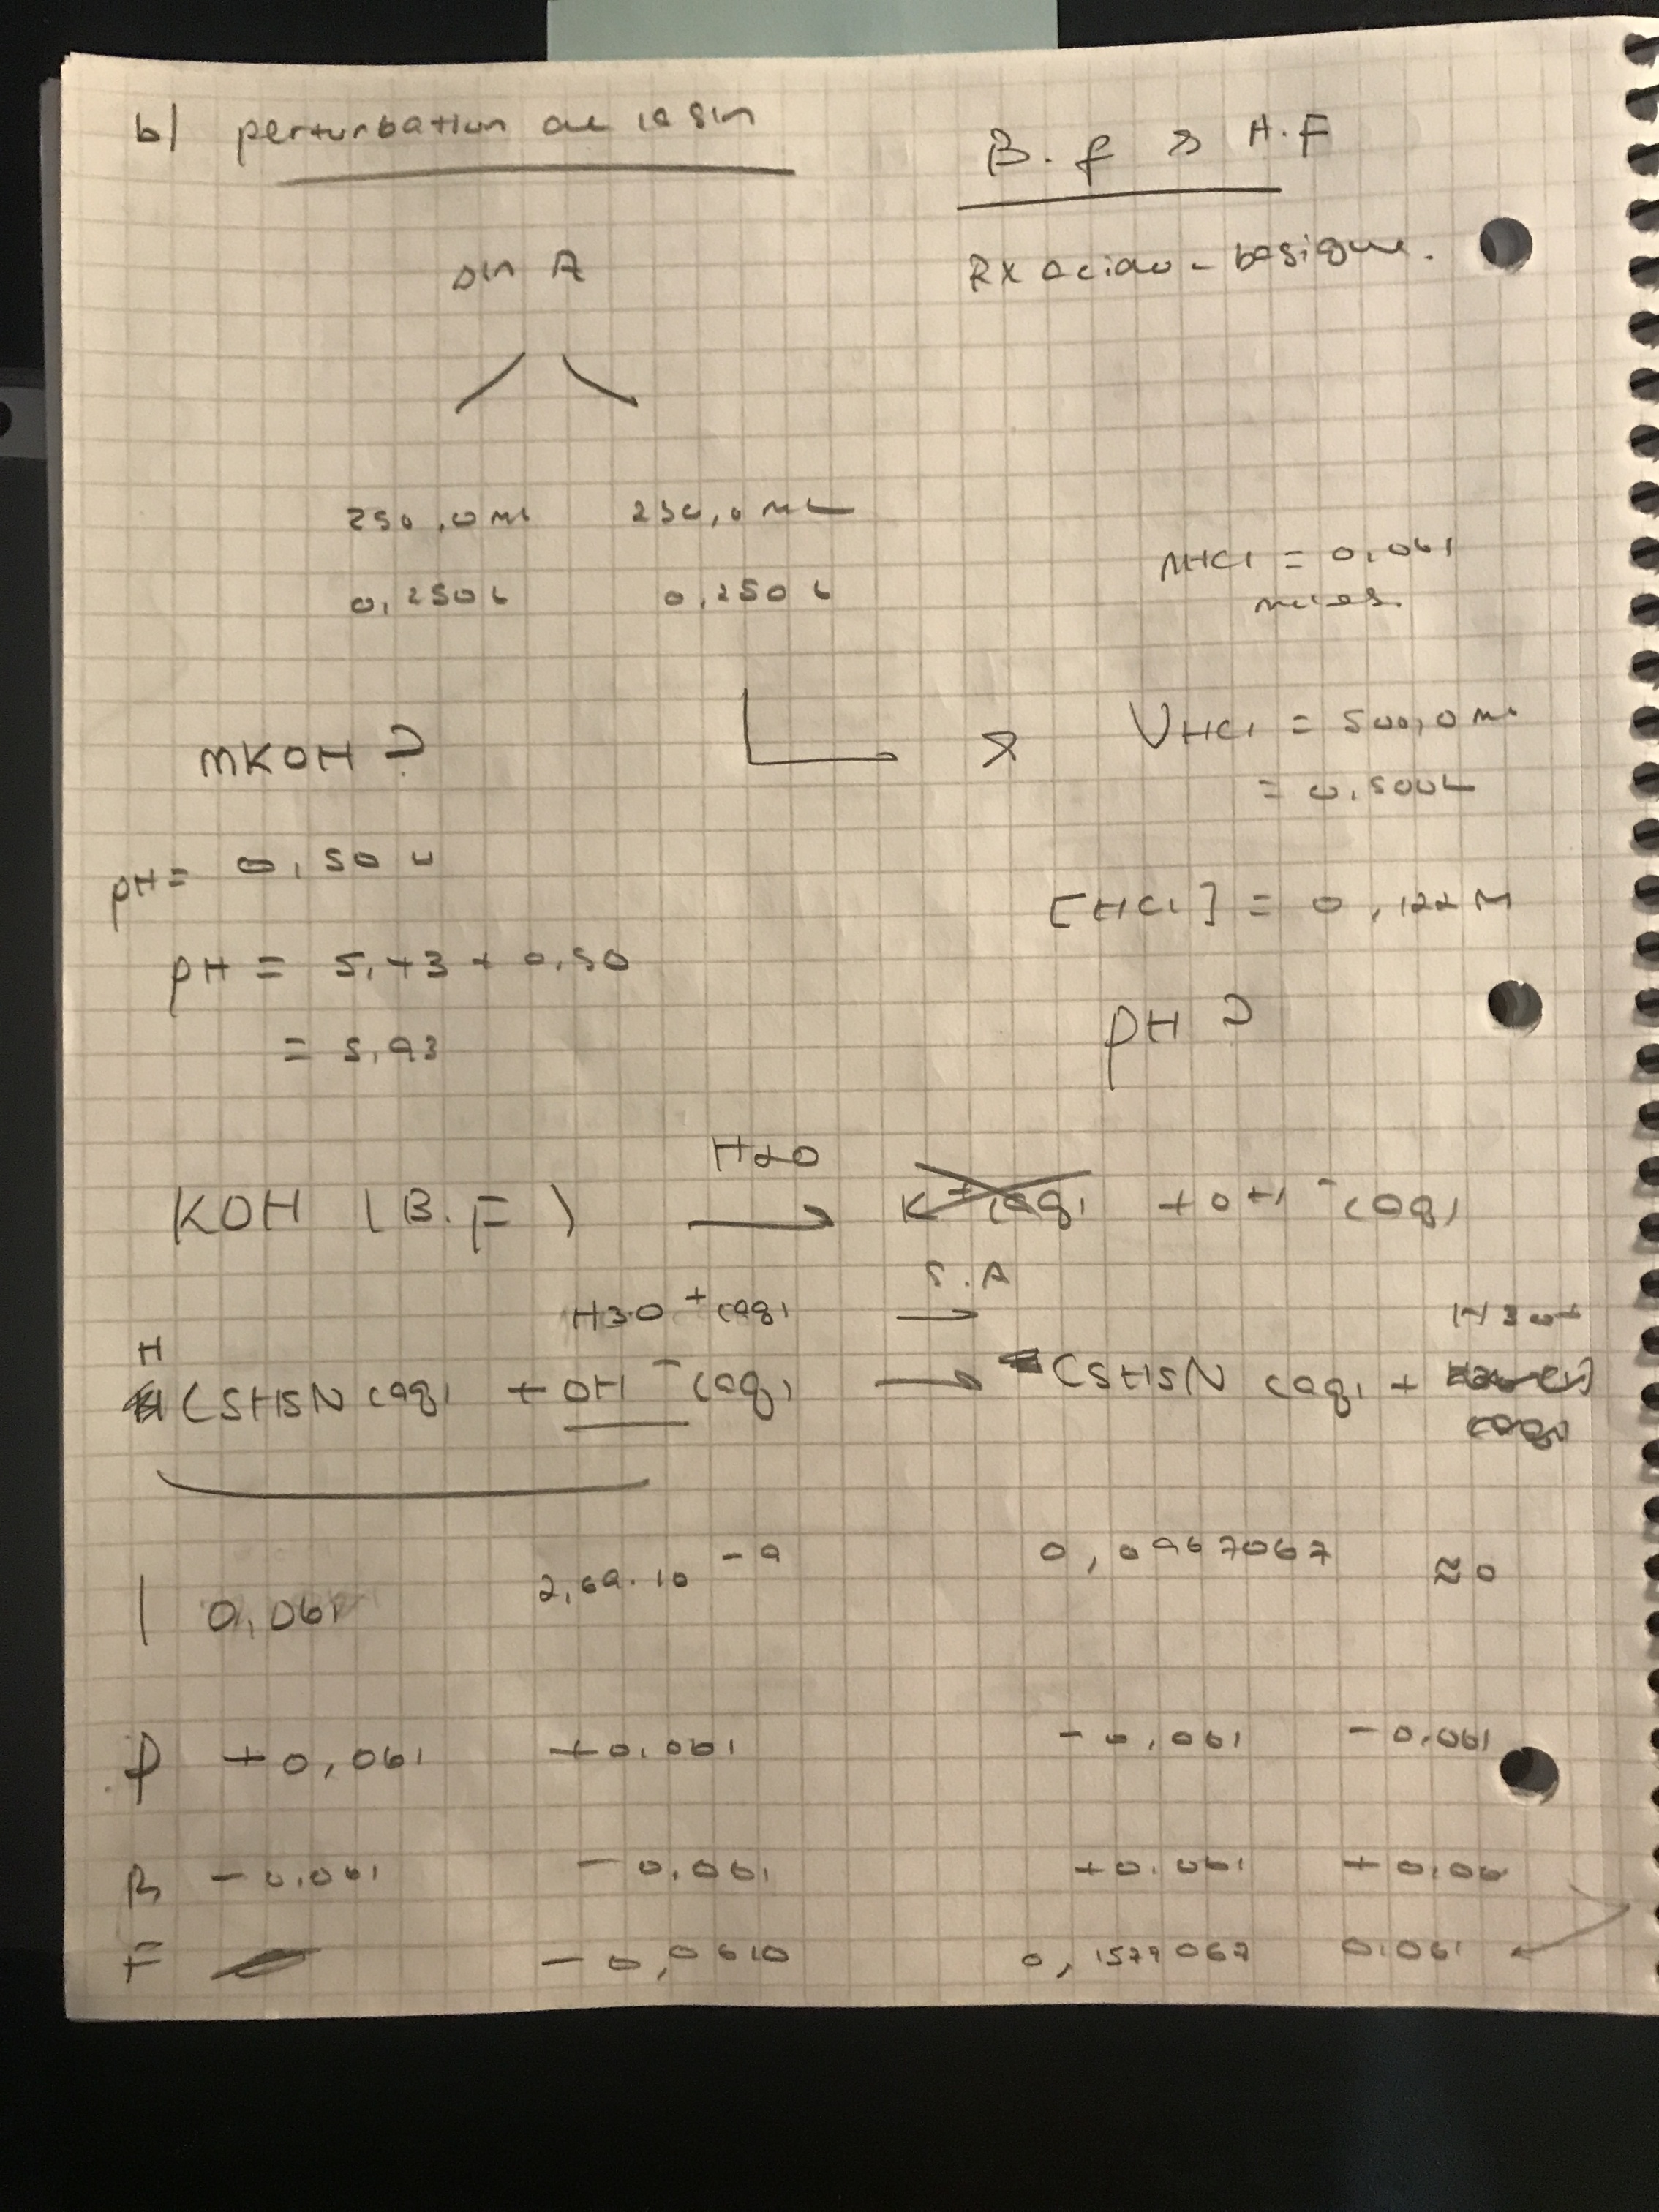 b) perturbation de la sln
B.f & A.F
Rx acido-basique.
sln A
250,0 mL 250,0 mL
0,250 L 0,250 L
nHCl = 0,061
moles.
VHCl = 500,0 mL
= 0,500L
mKOH ?
pH = 0,50 u
[HCl] = 0,122 M
pH = 5,43 + 0,50
= 5,93
pH ?
KOH (B.F) H2O → K+(aq) + OH-(aq)
H3O+(aq) → S.A H3O+
HC5H5N (aq) + OH-(aq) → C5H5N (aq) +
I 0,061 2,69.10-9 0,0967067 ≈0
P +0,061 +0,061 -0,061 -0,061
R -0,061 -0,061 +0,061 +0,06
F -0,0610 0,1577067 0,061